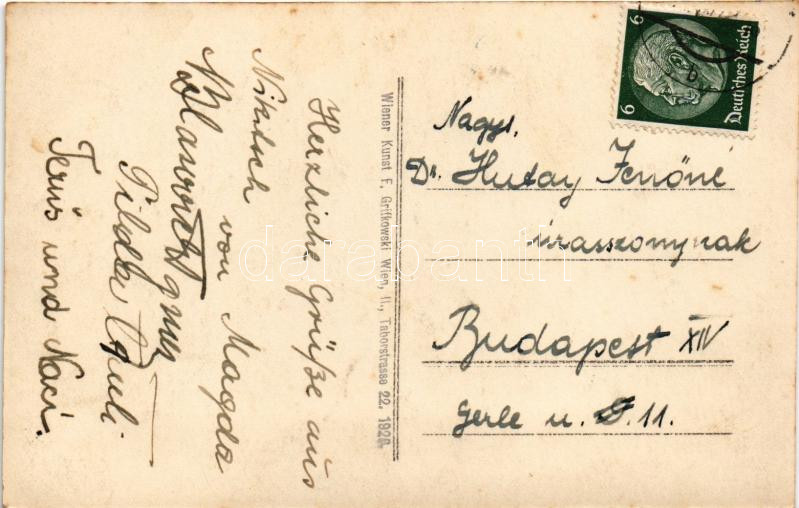 Herzliche Grüße aus
Nikitsch von Magda
Tilda Guli
Terus und Naci.
Wiener Kunst F. Grifkowski Wien, II., Taborstrasse 22. 1920.
6 6
Deutsches Reich
Nagys.
Dr. Hutay Jenőné
úrasszonynak
Budapest XIV
Gerle u. 11.
darabanth